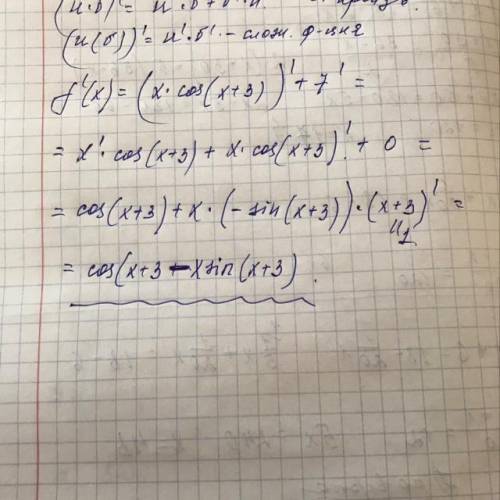 (и·в)' = и'·в + в'·и. - произв.
(и(в))' = и'·в' - слож. ф-ция
f'(x) = (x·cos(x+3))' + 7' =
= x'·cos(x+3) + x·cos(x+3)' + 0 =
= cos(x+3) + x·(-sin(x+3))·(x+3)' =
1
= cos(x+3 - xsin(x+3).